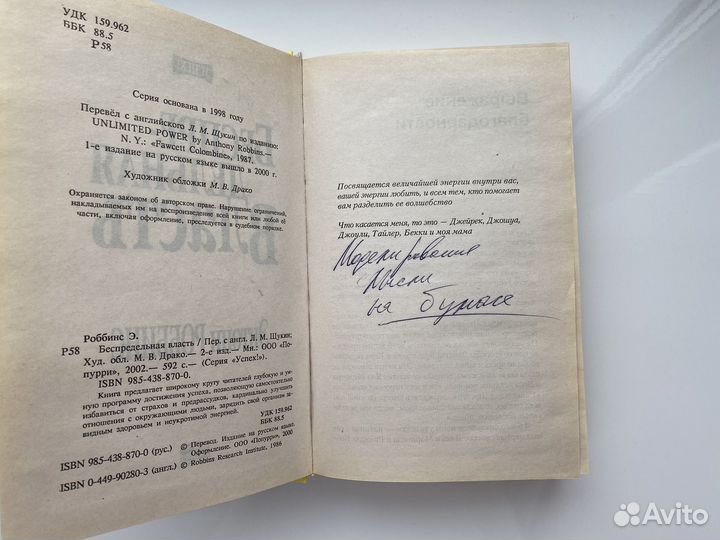 УДК 159.962
ББК 88.5
Р58
Серия основана в 1998 году
Перевёл с английского Л. М. Щукин по изданию:
UNLIMITED POWER by Anthony Robbins.—
N. Y.: «Fawcett Colombine», 1987.
1-е издание на русском языке вышло в 2000 г.
Художник обложки М. В. Драко
Охраняется законом об авторском праве. Нарушение ограничений,
накладываемых им на воспроизведение всей книги или любой её
части, включая оформление, преследуется в судебном порядке.
Роббинс Э.
Р58 Беспредельная власть / Пер. с англ. Л. М. Щукин;
Худ. обл. М. В. Драко.— 2-е изд.— Мн.: ООО «По-
пурри», 2002.— 592 с.— (Серия «Успех!»).
ISBN 985-438-870-0.
Книга предлагает широкому кругу читателей глубокую и ум-
ную программу достижения успеха, позволяющую самостоятельно
избавиться от страхов и предрассудков, кардинально улучшить
отношения с окружающими людьми, зарядить свой организм за-
видным здоровьем и неукротимой энергией.
УДК 159.962
ББК 88.5
ISBN 985-438-870-0 (рус.)
© Перевод. Издание на русском языке.
Оформление. ООО «Попурри», 2000
ISBN 0-449-90280-3 (англ.)
© Robbins Research Institute, 1986
Выражение
благодарности
Посвящается величайшей энергии внутри вас,
вашей энергии любить, и всем тем, кто помогает
вам разделить ее волшебство
Что касается меня, то это — Джейрек, Джошуа,
Джоули, Тайлер, Бекки и моя мама
Моделирование
мысли
на бумаге
Avito